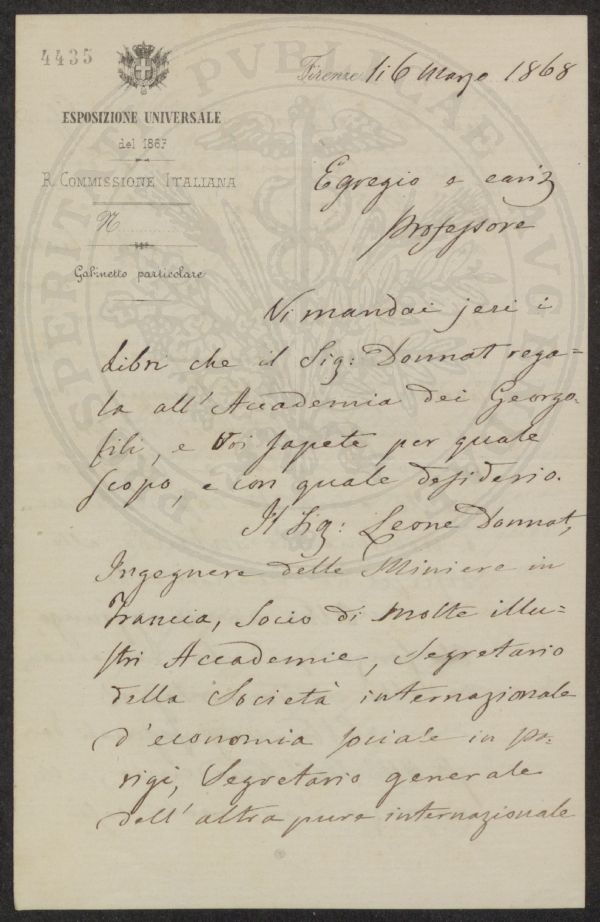 4435
Firenze li 6 Marzo 1868
ESPOSIZIONE UNIVERSALE
del 1867
R. COMMISSIONE ITALIANA
N.
Gabinetto particolare
Egregio e cariss
Professore
Vi mandai jeri i
libri che il Sig: Donnat rega=
la all'Accademia dei Georgo-
fili, e Voi sapete per quale
scopo, e con quale desiderio.
Il Sig: Leone Donnat,
Ingegnere delle Miniere in
Francia, Socio di molte illu=
stri Accademie, Segretario
della Società internazionale
d'economia sociale in Pa-
rigi, Segretario generale
dell'altra pure internazionale